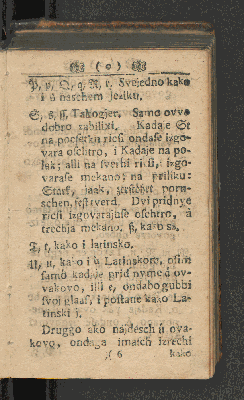 ( o )
P, p, Q, q, R, r. Svejedno kako
i u naschem jeziku.
S, s, ſſ, Takogjer. Samo ovvo
dobro zabilixi. Kada je St
na pocsetku ricſi ondaſe izgo-
vara oſchtro, i Kada je na po-
lak; alli na ſverhi ricſi, izgo-
varaſe mekano; na priliku:
Stark, ſtaak,
ſchen, feſt verd. Dvi pridnye
ricſi izgovarajuſe oſchtro, à
trechja mekano. ß, kako sa,
T, t, kako i latinsko.
U, u, kako i ù Latinskom, oſim
ſamo kada je prid nyme ù ov-
vakovo, illi e, ondabo gubbi
ſvoj glaaſ, i poſtane kako La-
tinski i.
Druggo ako najdesch ù ova-
kovo, ondaga imaſch izrechi
6 kako